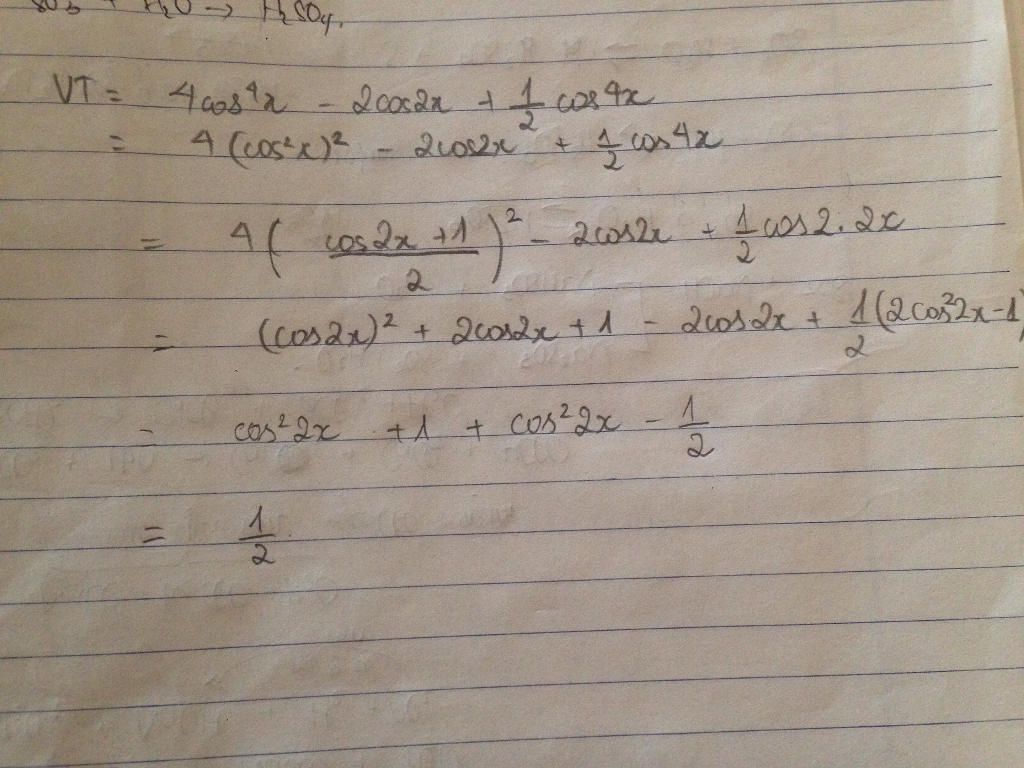 + H₂O → H₂SO₄.
VT = 4cos⁴x - 2cos2x + 1/2 cos4x
= 4(cos²x)² - 2cos2x + 1/2 cos4x
= 4((cos2x + 1)/2)² - 2cos2x + 1/2 cos2.2x
= (cos2x)² + 2cos2x + 1 - 2cos2x + 1/2(2cos²2x - 1)
= cos²2x + 1 + cos²2x - 1/2
= 1/2